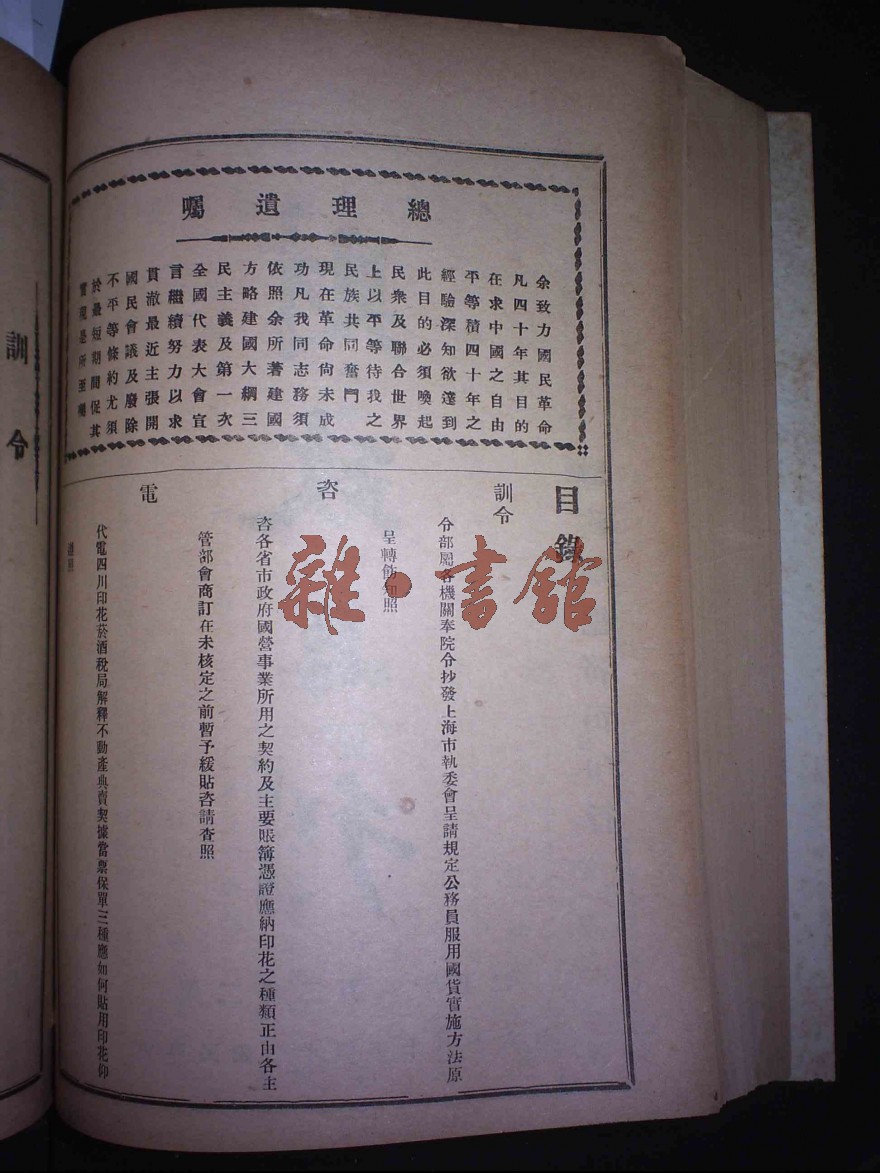 總理遺囑
余致力國民革命
凡四十年其目的
在求中國之自由
平等積四十年之
經驗深知欲達到
此目的必須喚起
民衆及聯合世界
上以平等待我之
民族共同奮鬥
現在革命尙未成
功凡我同志務須
依照余所著建國
方略建國大綱三
民主義及第一次
全國代表大會宣
言繼續努力以求
貫澈最近主張開
國民會議及廢除
不平等條約尤須
於最短期間促其
實現是所至囑
目錄
訓令
令部屬各機關奉院令抄發上海市執委會呈請規定公務員服用國貨實施方法原
呈轉飭知照
咨
咨各省市政府國營事業所用之契約及主要賬簿憑證應納印花之種類正由各主
管部會商訂在未核定之前暫予緩貼咨請查照
電
代電四川印花菸酒稅局解釋不動產典賣契據當票保單三種應如何貼用印花仰
訓令
雜·書館